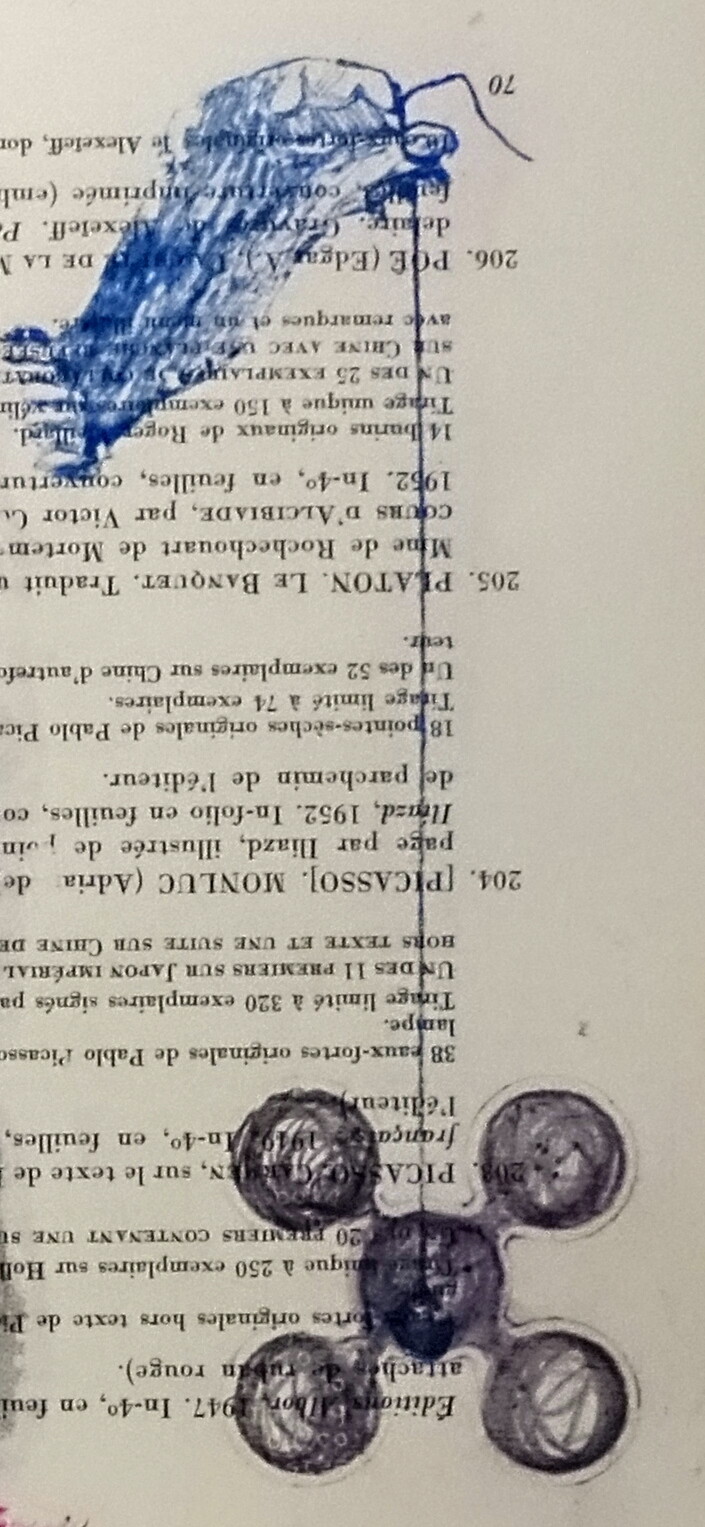 Éditions Albor, 1947. In-4º, en feui
attaches de ruban rouge).
fortes originales hors texte de Pic
Tirage unique à 250 exemplaires sur Holl
20 PREMIERS CONTENANT UNE SU
203. PICASSO. CARMEN, sur le texte de
française, 1949. In-4º, en feuilles,
l'éditeur).
38 eaux-fortes originales de Pablo Picasso
lampe.
Tirage limité à 320 exemplaires signés pa
UN DES 11 PREMIERS SUR JAPON IMPÉRIAL
HORS TEXTE ET UNE SUITE SUR CHINE DE
204. [PICASSO]. MONLUC (Adria de
page par Iliazd, illustrée de
Iliazd, 1952. In-folio en feuilles, co
de parchemin de l'éditeur.
18 pointes-sèches originales de Pablo Pica
Tirage limité à 74 exemplaires.
Un des 52 exemplaires sur Chine d'autref
teur.
205. PLATON. LE BANQUET. Traduit
Mme de Rochechouart de Mortem
COURS D'ALCIBIADE, par Victor
1952. In-4º, en feuilles, couvertur
14 burins originaux de Roger
Tirage unique à 150 exemplaires sur vélin
UN DES 25 EXEMPLAIRES
SUR CHINE AVEC UNE PLANCHE REFUSÉE
avec remarques et un menu illustré.
206. POE (Edgar A.). DE LA
delaire. Gravures de Alexeieff.
feuilles, couverture imprimée (emb
10 eaux-fortes originales de Alexeieff, don
70